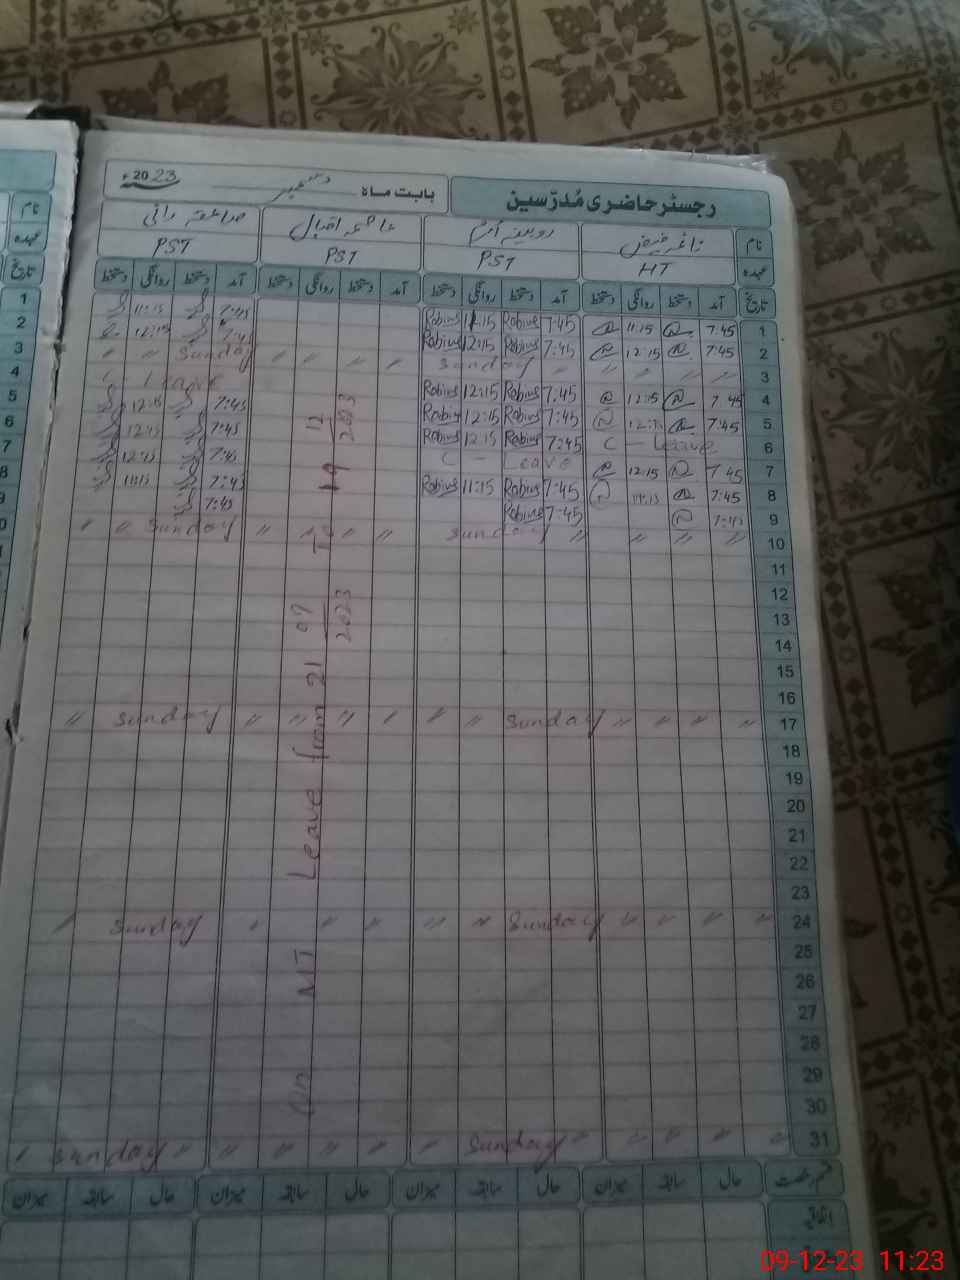 رجسٹر حاضری مُدرّسین بابت ماہ دسمبر 2023ء
نام روبینہ اکرم عاشمہ اقبال
عہدہ HT PST PST PST
تاریخ آمد دستخط روانگی دستخط آمد دستخط روانگی دستخط آمد دستخط روانگی دستخط آمد دستخط روانگی دستخط
1 7:45 11:15 7:45 Robius 11:15 Robius 7:45 11:15
2 7:45 12:15 7:45 Robius 12:15 Robius 7:45 12:15
3 〃 〃 〃 〃 〃 Sunday 〃 〃 〃 〃 Sunday 〃 〃
4 7:45 12:15 7:45 Robius 12:15 Robius C - Leave
5 7:45 12:15 7:45 Robius 12:15 Robius 7:45 12:15
6 C - Leave 7:45 Robius 12:15 Robius 7:45 12:15
7 7:45 12:15 C - Leave 7:45 12:15
8 7:45 11:15 7:45 Robius 11:15 Robius 7:45 11:15
9 7:45 7:45 Robius 7:45
10 〃 〃 〃 〃 Sunday 〃 〃 〃 〃 Sunday 〃 〃
11
12
13
14
15
16
17 〃 〃 〃 〃 Sunday 〃 〃 〃 〃 〃 〃 Sunday 〃
18
19
20
21
22
23
24 〃 〃 〃 〃 Sunday 〃 〃 〃 〃 〃 Sunday 〃
25
26
27
28
29
30
31 〃 〃 〃 〃 Sunday 〃 〃 〃 〃 〃 〃 Sunday 〃
On MT Leave from 21 07/2023 To 19 12/2023
حال سابقہ میزان حال سابقہ میزان حال سابقہ میزان حال سابقہ میزان
اتفاقیہ
نام
عہدہ
تاریخ
1
2
3
4
5
6
7
8
9
0
09-12-23 11:23